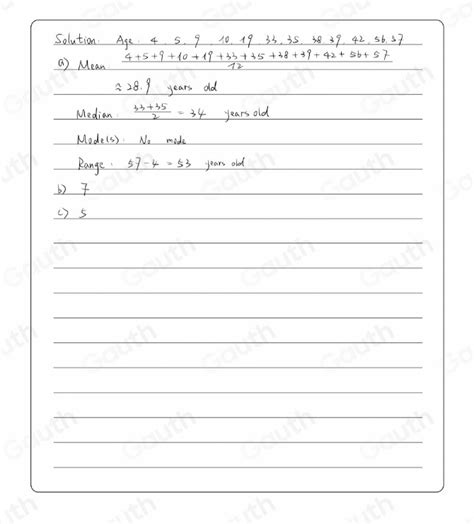 Solution: Age: 4 5, 9 10, 19 33, 35, 38 39, 42, 56, 57
a) Mean 4+5+9+10+19+33+35+38+39+42+56+57
12
≈ 28.9 years old
Median: 33+35
2
= 34 years old
Mode(s): No mode
Range: 57-4 = 53 years old
b) 7
c) 5
Gauth